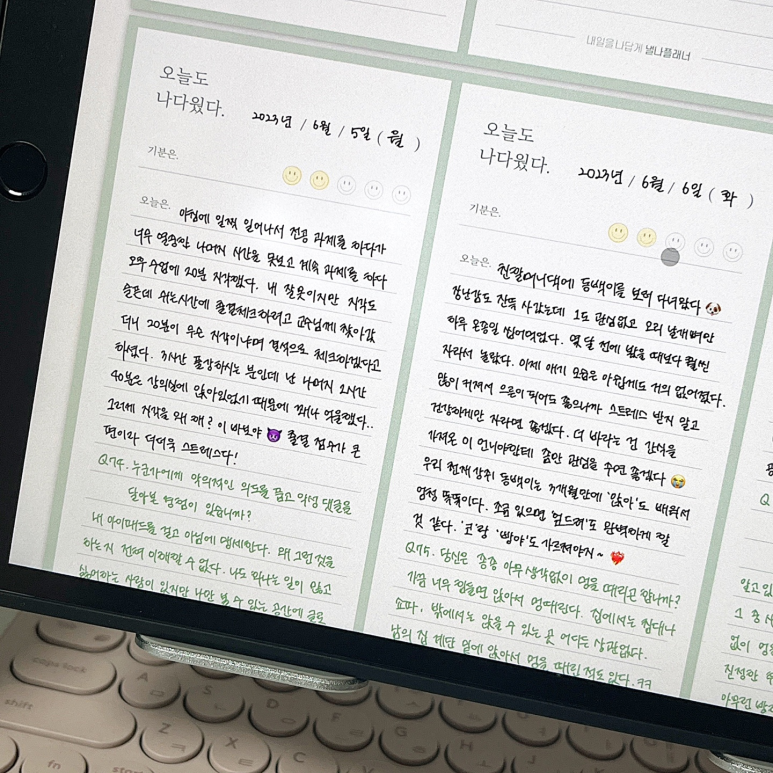 내일을 나답게 낼나플래너
오늘도
나다웠다.
2023년 / 6월 / 5일 ( 월 )
기분은.
오늘은. 아침에 일찍 일어나서 전공 과제를 하다가
너무 열중한 나머지 시간을 못보고 계속 과제를 하다
오후 수업에 20분 지각했다. 내 잘못이지만 지각도
슬픈데 쉬는시간에 출결체크하려고 교수님께 찾아갔
더니 20분이 무슨 지각이냐며 결석으로 체크하겠다고
하셨다. 3시간 풀강하시는 분인데 난 나머지 2시간
40분은 강의실에 앉아있었기 때문에 꽤나 억울했다..
그러게 지각을 왜 해? 이 바보야 😈 출결 점수가 큰
편이라 더더욱 스트레스다!
Q74. 누군가에게 악의적인 의도를 품고 악성 댓글을
달아본 경험이 있습니까?
내 아이패드를 걸고 하늘에 맹세한다. 왜 그런 것을
하는지 전혀 이해할 수 없다. 나도 화나는 일이 있고
싫어하는 사람이 있지만 나만 볼 수 있는 공간에 글로
오늘도
나다웠다.
2023년 / 6월 / 6일 ( 화 )
기분은.
오늘은. 친할머니댁에 동백이를 보러 다녀왔다 🐶
장난감도 잔뜩 사갔는데 1도 관심없고 오리 날개뼈만
하루 온종일 씹어먹었다. 몇 달 전에 봤을 때보다 훨씬
자라서 놀랐다. 이제 애기 모습은 아쉽게도 거의 없어졌다.
많이 커져서 으른이 되어도 좋으니까 스트레스 받지 말고
건강하게만 자라면 좋겠다. 더 바라는 건 간식을
가져온 이 언니야한테 좀만 관심을 주면 좋겠다 😭
우리 천재강쥐 동백이는 3개월만에 '앉아'도 배워서
엄청 똑똑이다. 조금 있으면 '엎드려'도 완벽하게 할
것 같다. '코'랑 '빵야'도 가르쳐야지~ ❤️‍🔥
Q75. 당신은 종종 아무생각없이 멍을 때리곤 합니까?
가끔 너무 힘들면 앉아서 멍때린다. 집에서는 침대나
쇼파, 밖에서는 앉을 수 있는 곳 어디든 상관없다.
남의 집 계단 옆에 앉아서 멍을 때린 적도 있다.ㅋㅋ
알고있
그 중 사
없이 멍
진정한
아무런 방
caps lock
shift
fn
A
S
D
F
G
H
Z
X
C